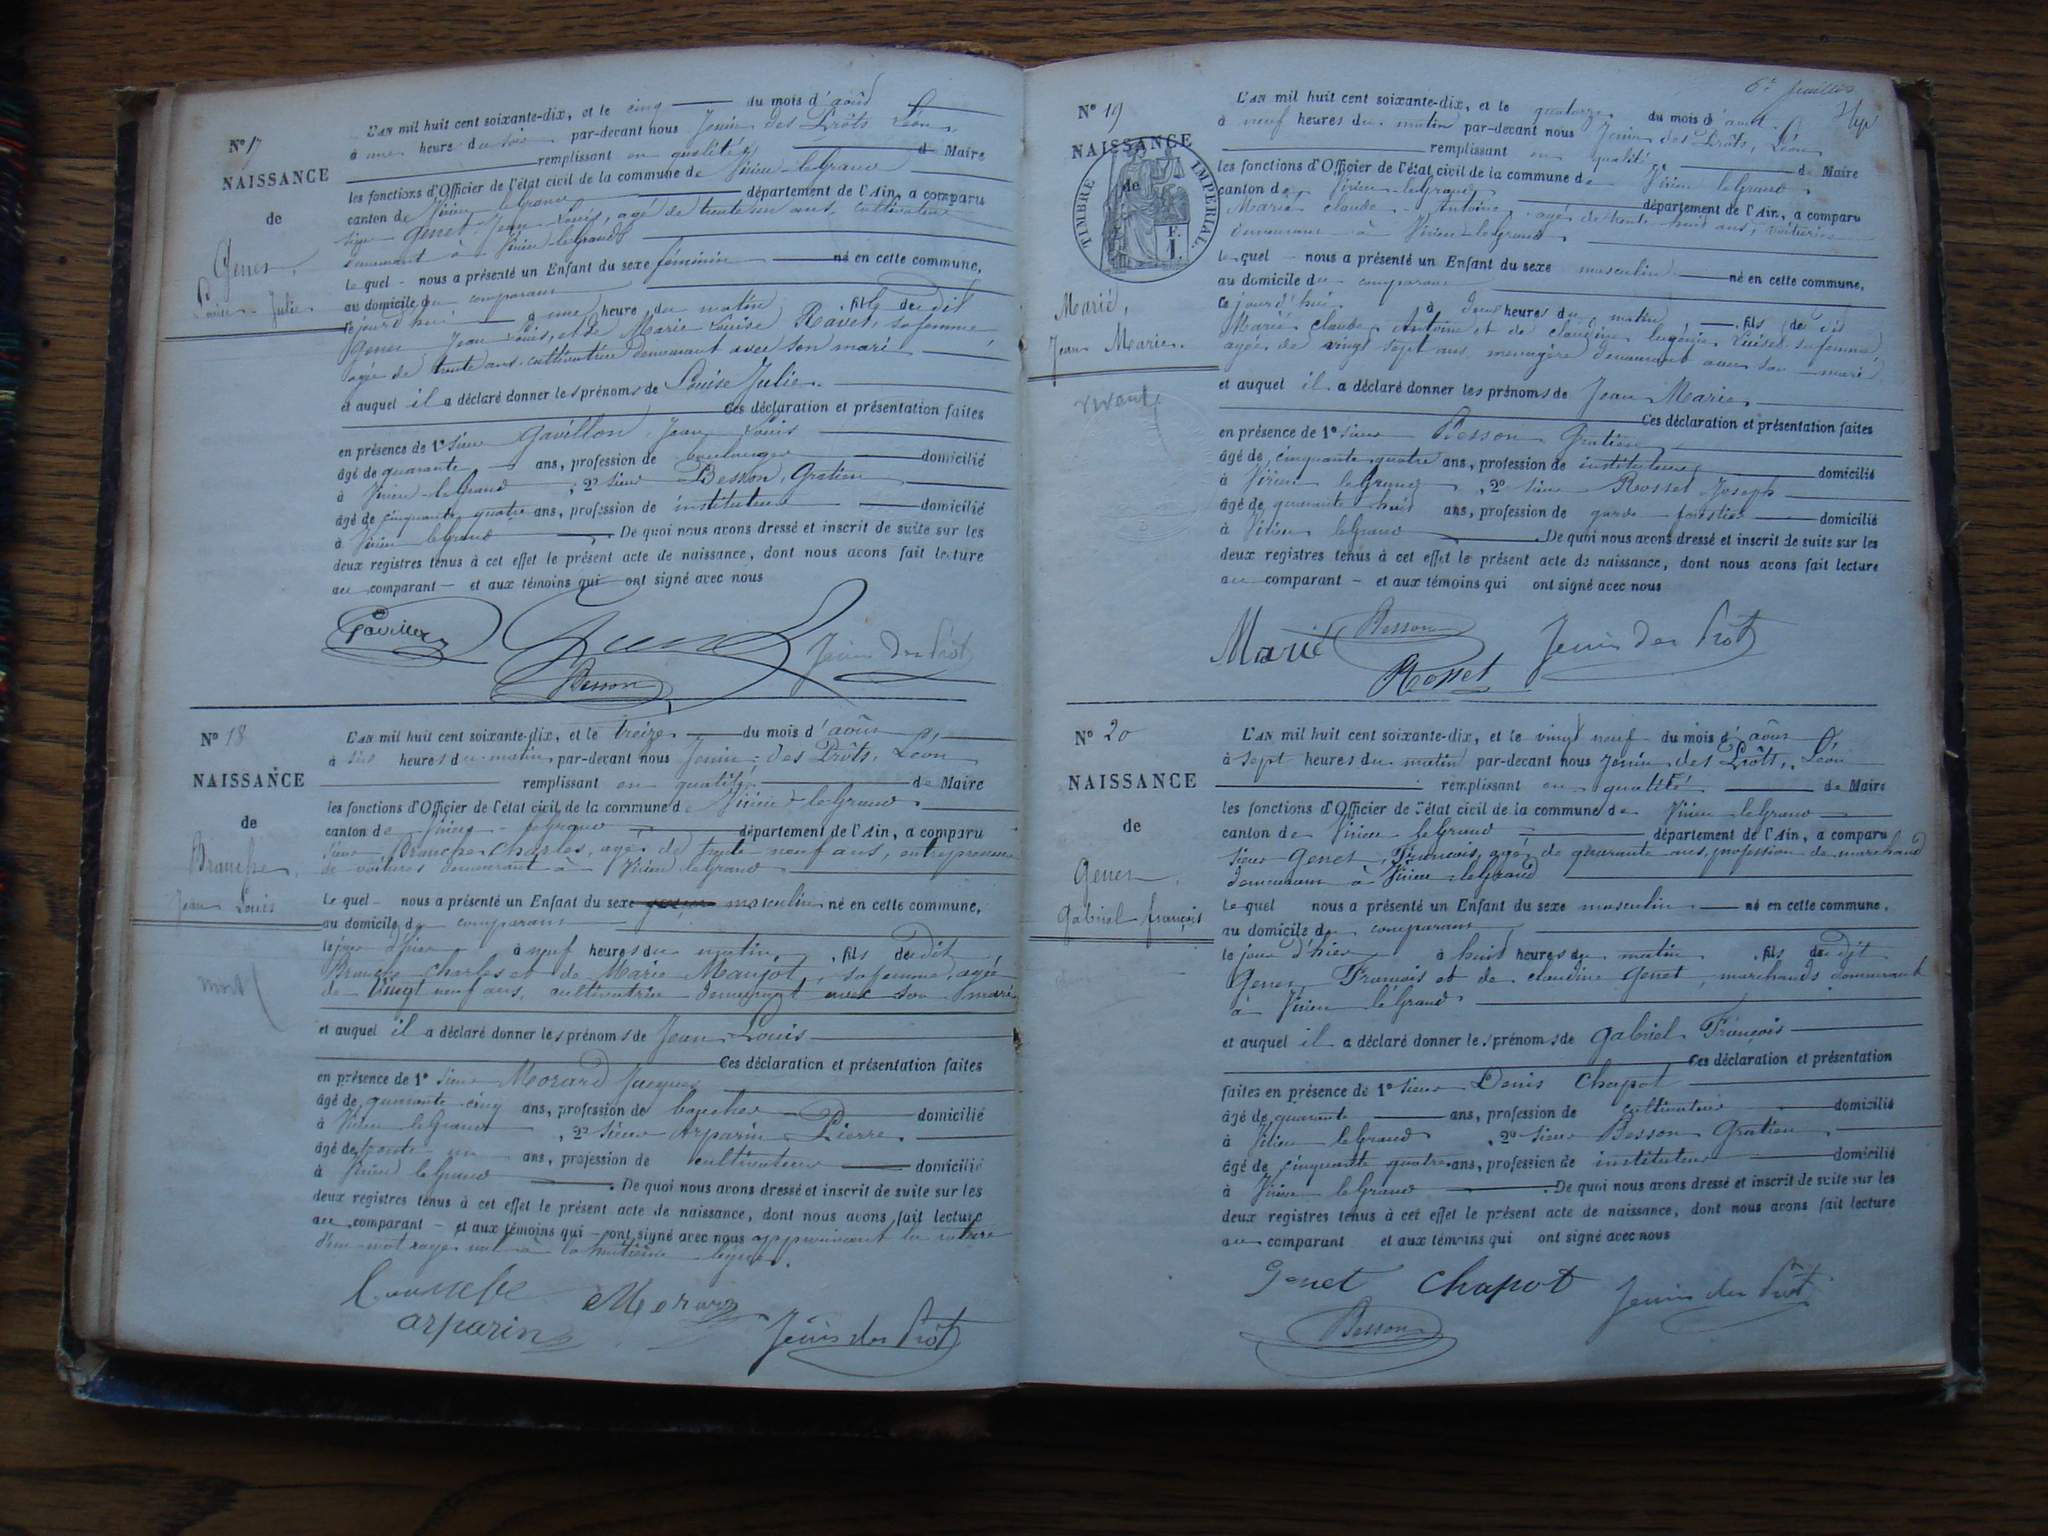 N° 17
NAISSANCE
de
Genet,
Louise-Julie
L'AN mil huit cent soixante-dix, et le cinq du mois d'août
à une heure du soir par-devant nous Jenin des Prôts, Léon,
remplissant en qualité de Maire
les fonctions d'Officier de l'état civil de la commune de Virieu-le Grand
canton de Virieu le Grand département de l'Ain, a comparu
sieur Genet Jean Louis, agé de trente un ans, cultivateur
demeurant à Virieu-le Grand
lequel nous a présenté un Enfant du sexe féminin né en cette commune,
au domicile du comparant
cejourd'hui à une heure du matin, fille du dit
Genet Jean Louis, et de Marie Louise Ravet, sa femme
agée de trente ans, cultivatrice demeurant avec son mari
et auquel il a déclaré donner les prénoms de Louise Julie.
Ces déclaration et présentation faites
en présence de 1° sieur Gavillon Jean Louis
âgé de quarante ans, profession de boulanger domicilié
à Virieu-le Grand, 2° sieur Besson, Gratien
âgé de cinquante quatre ans, profession de instituteur domicilié
à Virieu le Grand. De quoi nous avons dressé et inscrit de suite sur les
deux registres tenus à cet effet le présent acte de naissance, dont nous avons fait lecture
au comparant et aux témoins qui ont signé avec nous
Gavillon Genet Jenin des Prôts
Besson
N° 18
NAISSANCE
de
Branche,
Jean Louis
mort
L'AN mil huit cent soixante-dix, et le treize du mois d'août
à six heures du matin, par-devant nous Jenin-des Prôts, Léon
remplissant en qualité de Maire
les fonctions d'Officier de l'état civil de la commune de Virieu-le Grand
canton de Virieu-le Grand département de l'Ain, a comparu
sieur Branche Charles, agé de trente neuf ans, entrepreneur
de voitures demeurant à Virieu le Grand
lequel nous a présenté un Enfant du sexe masculin né en cette commune,
au domicile du comparant
le jour d'hier à neuf heures du matin, fils du dit
Branche Charles et de Marie Manjot, sa femme, agée
de vingt neuf ans, cultivatrice demeurant avec son mari
et auquel il a déclaré donner les prénoms de Jean-Louis
Ces déclaration et présentation faites
en présence de 1° sieur Morard Jacques
âgé de quarante cinq ans, profession de boucher domicilié
à Virieu le Grand, 2° sieur Arparin Pierre
âgé de trente un ans, profession de cultivateur domicilié
à Virieu le Grand. De quoi nous avons dressé et inscrit de suite sur les
deux registres tenus à cet effet le présent acte de naissance, dont nous avons fait lecture
au comparant et aux témoins qui ont signé avec nous approuvant la rature
d'un mot rayé nul à la huitième ligne.
Morard
arparin Jenin des Prôts
6e feuillet
N° 19
NAISSANCE
de
TIMBRE IMPERIAL.
F.
1.
Marié,
Jean Marie.
L'AN mil huit cent soixante-dix, et le quatorze du mois d'août
à neuf heures du matin par-devant nous Jenin des Prôts, Léon
remplissant en qualité de Maire
les fonctions d'Officier de l'état civil de la commune de Virieu le Grand
canton de Virieu-le Grand département de l'Ain, a comparu
Marié Claude Antoine, agé de trente huit ans, voiturier
demeurant à Virieu-le Grand
lequel nous a présenté un Enfant du sexe masculin né en cette commune,
au domicile du comparant
cejourd'hui à deux heures du matin fils du dit
Marié Claude Antoine et de Claudine Eugénie sa femme,
agée de vingt sept ans, menagère demeurant avec son mari
et auquel il a déclaré donner les prénoms de Jean Marie
Ces déclaration et présentation faites
en présence de 1° sieur Besson Gratien
âgé de cinquante quatre ans, profession de instituteur domicilié
à Virieu le Grand, 2° sieur Rosset Joseph
âgé de quarante huit ans, profession de garde forestier domicilié
à Virieu le Grand. De quoi nous avons dressé et inscrit de suite sur les
deux registres tenus à cet effet le présent acte de naissance, dont nous avons fait lecture
au comparant et aux témoins qui ont signé avec nous
Marié Besson Jenin des Prôts
Rosset
N° 20
NAISSANCE
de
Genet,
Gabriel françois
L'AN mil huit cent soixante-dix, et le vingt neuf du mois d'août
à sept heures du matin par-devant nous Jenin des Prôts, Léon
remplissant en qualité de Maire
les fonctions d'Officier de l'état civil de la commune de Virieu le Grand
canton de Virieu le Grand département de l'Ain, a comparu
sieur Genet, François, agé de quarante ans, profession de marchand
demeurant à Virieu-le Grand
lequel nous a présenté un Enfant du sexe masculin né en cette commune,
au domicile du comparant
le jour d'hier à huit heures du matin fils du dit
Genet François et de Claudine Genet, marchands demeurant
à Virieu le Grand
et auquel il a déclaré donner les prénoms de Gabriel François
Ces déclaration et présentation
faites en présence de 1° sieur Denis Chapot
âgé de quarante ans, profession de cultivateur domicilié
à Virieu le Grand, 2° sieur Besson Gratien
âgé de cinquante quatre ans, profession de instituteur domicilié
à Virieu le Grand. De quoi nous avons dressé et inscrit de suite sur les
deux registres tenus à cet effet le présent acte de naissance, dont nous avons fait lecture
au comparant et aux témoins qui ont signé avec nous
Genet Chapot Jenin des Prôts
Besson